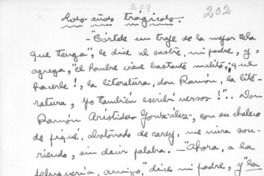 204 202
Locos años trágicos.
-"Córtele un traje de la mejor tela
que tenga", le dice al sastre, mi padre, y,
agrega, "el hombre viene bastante maltito, ¡qué
hacerle!, la literatura, don Ramón, la lite-
ratura, yo también escribí versos!"... Don
Ramón Arístides González, con su chaleco
de piqué, abotonado de carey, me mira son-
riendo, sin decir palabra. -Ahora, a la
amigo", dice mi padre, y "la